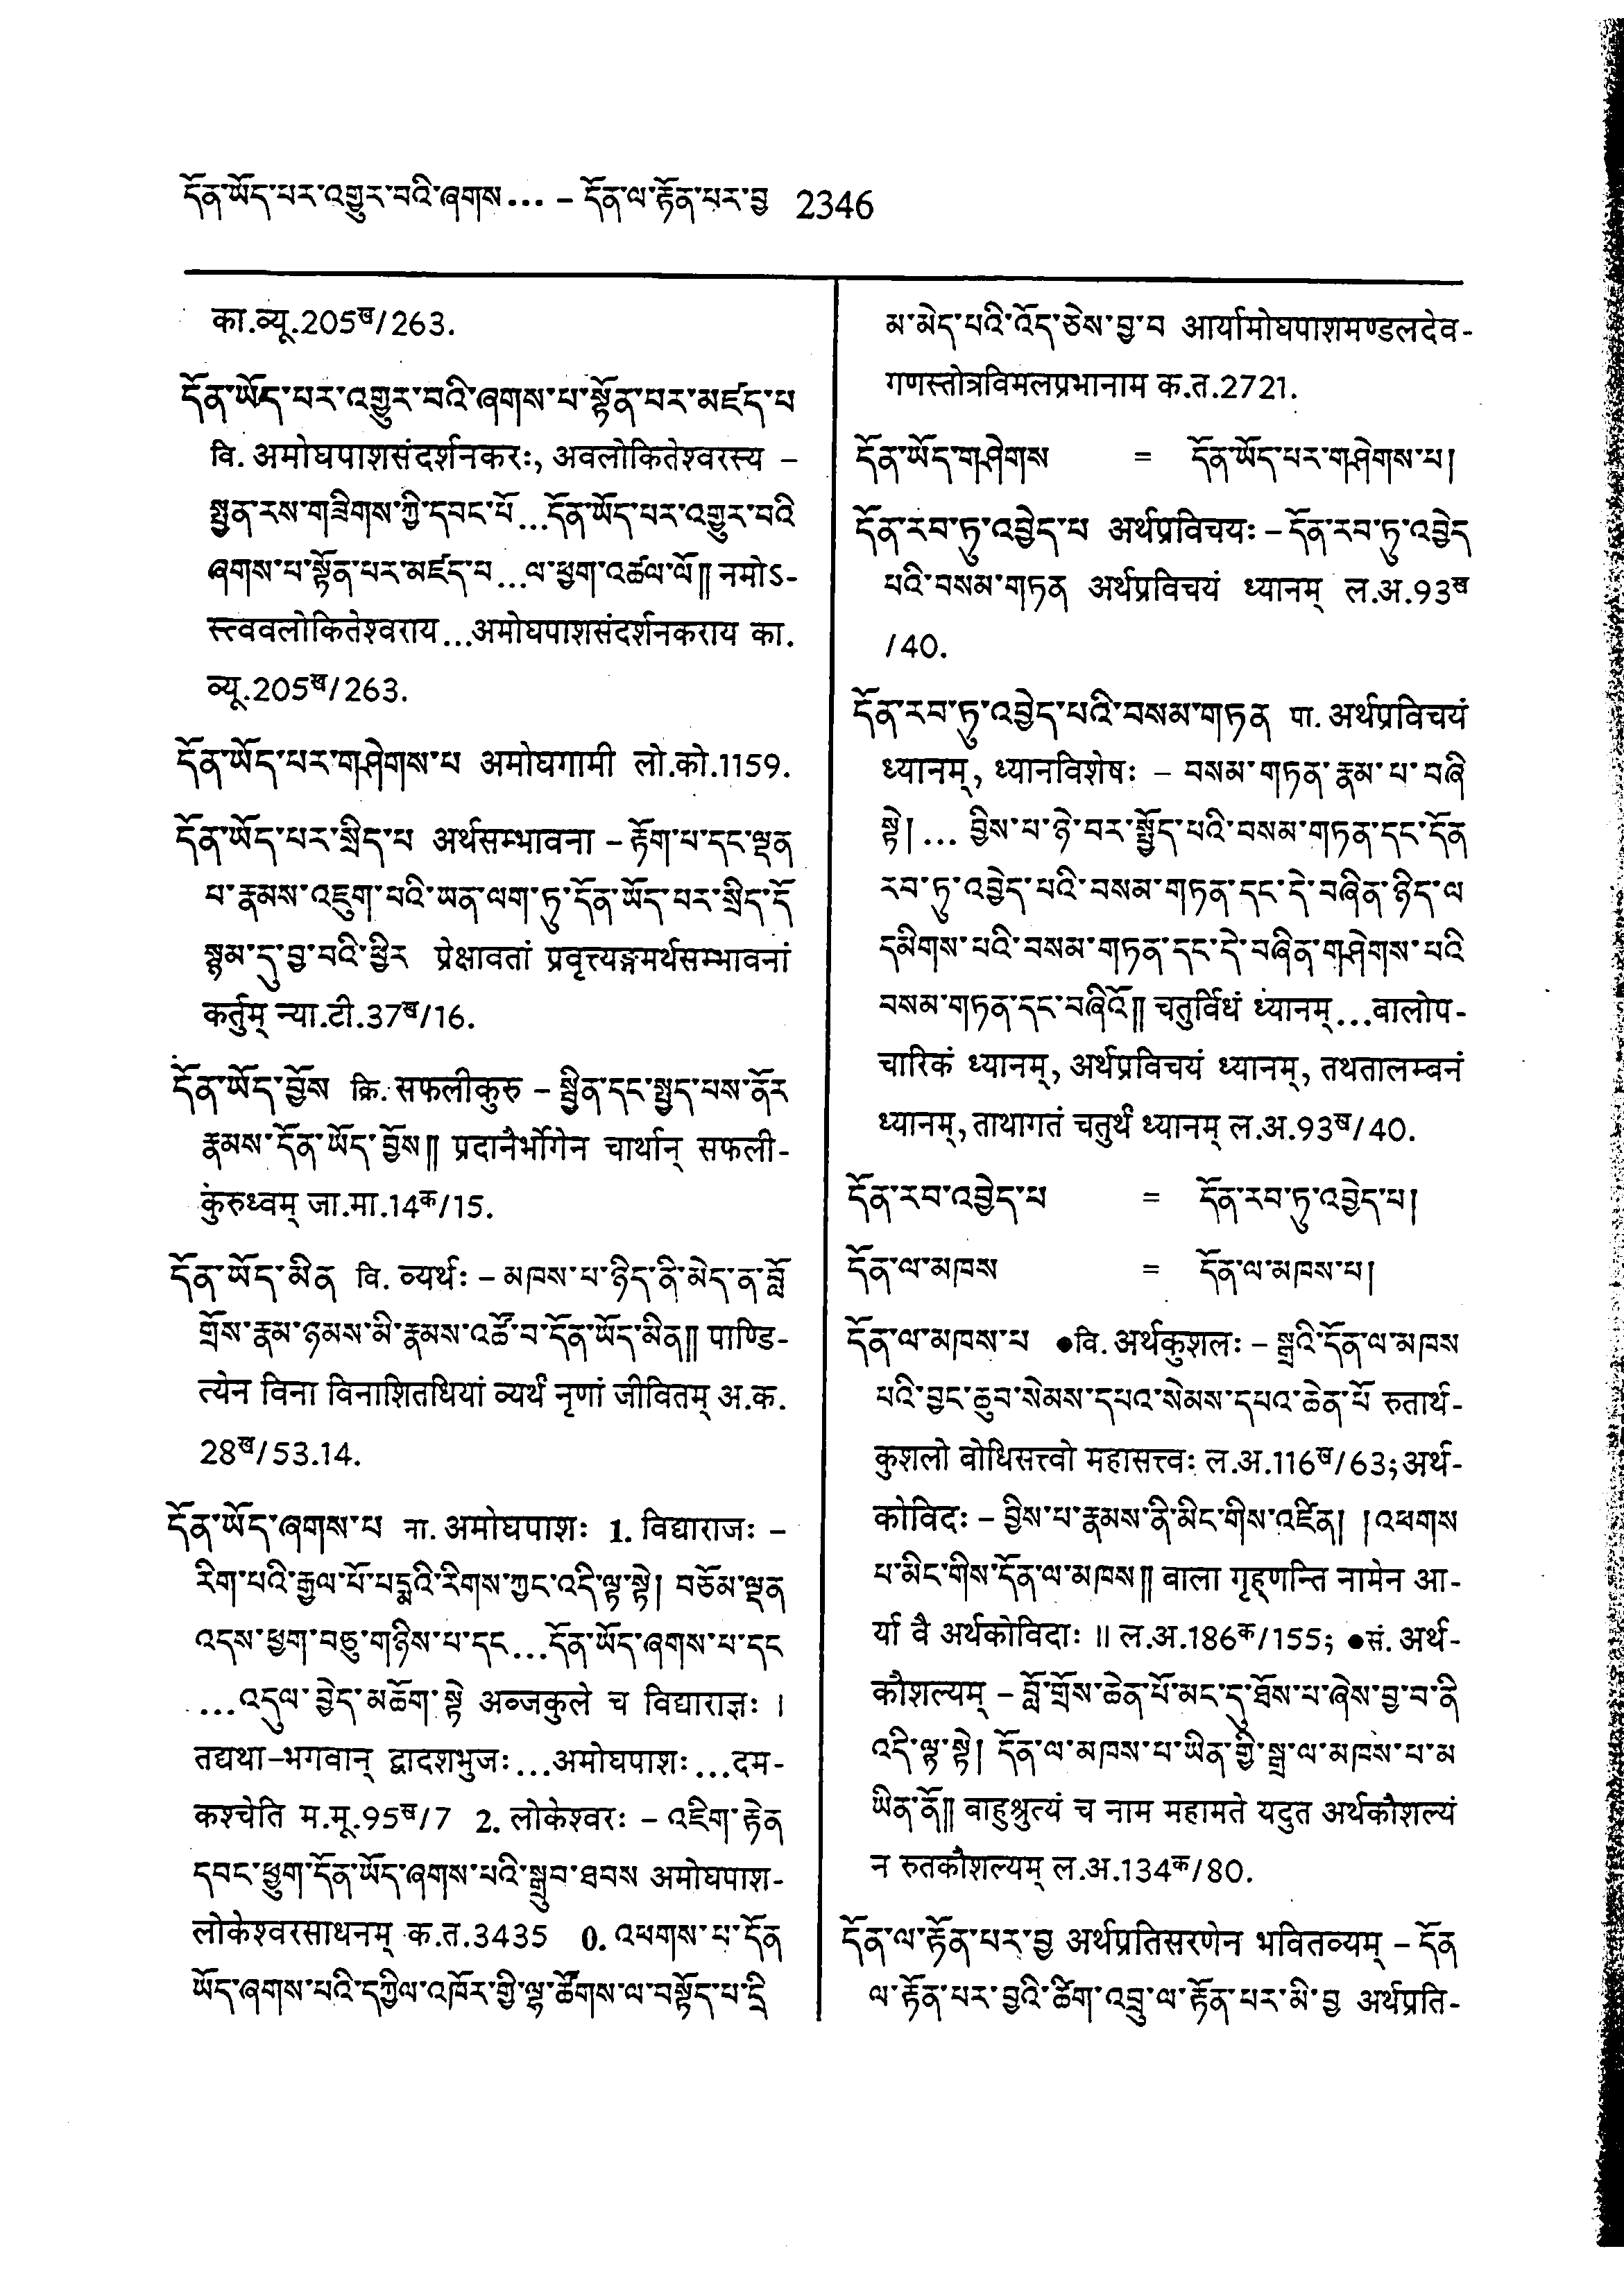 དོན་ཡོད་པར་འགྱུར་བའི་ཞགས... – དོན་ལ་རྟོན་པར་བྱ 2346
का.व्यू.205ख/263.
དོན་ཡོད་པར་འགྱུར་བའི་ཞགས་པ་སྟོན་པར་མཛད་པ
वि. अमोघपाशसंदर्शनकरः, अवलोकितेश्वरस्य –
སྤྱན་རས་གཟིགས་ཀྱི་དབང་པོ...དོན་ཡོད་པར་འགྱུར་བའི
ཞགས་པ་སྟོན་པར་མཛད་པ...ལ་ཕྱག་འཚལ་ལོ།། नमोऽ-
स्त्ववलोकितेश्वराय...अमोघपाशसंदर्शनकराय का.
व्यू.205ख/263.
དོན་ཡོད་པར་གཤེགས་པ अमोघगामी लो.को.1159.
དོན་ཡོད་པར་སྲིད་པ अर्थसम्भावना – རྟོག་པ་དང་ལྡན
པ་རྣམས་འཇུག་པའི་ཡན་ལག་ཏུ་དོན་ཡོད་པར་སྲིད་དོ
སྙམ་དུ་བྱ་བའི་ཕྱིར प्रेक्षावतां प्रवृत्त्यङ्गमर्थसम्भावनां
कर्तुम् न्या.टी.37ख/16.
དོན་ཡོད་བྱོས क्रि. सफलीकुरु – སྦྱིན་དང་སྤྱད་པས་ནོར
རྣམས་དོན་ཡོད་བྱོས།། प्रदानैर्भोगेन चार्थान् सफली-
कुरुध्वम् जा.मा.14क/15.
དོན་ཡོད་མིན वि. व्यर्थः – མཁས་པ་ཉིད་ནི་མེད་ན་བློ
གྲོས་རྣམ་ཉམས་མི་རྣམས་འཚོ་བ་དོན་ཡོད་མིན།། पाण्डि-
त्येन विना विनाशितधियां व्यर्थं नृणां जीवितम् अ.क.
28ख/53.14.
དོན་ཡོད་ཞགས་པ ना. अमोघपाशः 1. विद्याराजः –
རིག་པའི་རྒྱལ་པོ་པདྨའི་རིགས་ཀྱང་འདི་ལྟ་སྟེ། བཅོམ་ལྡན
འདས་ཕྱག་བཅུ་གཉིས་པ་དང...དོན་ཡོད་ཞགས་པ་དང
...འདུལ་བྱེད་མཆོག་སྟེ अब्जकुले च विद्याराज्ञः ।
तद्यथा–भगवान् द्वादशभुजः...अमोघपाशः...दम-
कश्चेति म.मू.95ख/7 2. लोकेश्वरः – འཇིག་རྟེན
དབང་ཕྱུག་དོན་ཡོད་ཞགས་པའི་སྒྲུབ་ཐབས अमोघपाश-
लोकेश्वरसाधनम् क.त.3435 0. འཕགས་པ་དོན
ཡོད་ཞགས་པའི་དཀྱིལ་འཁོར་གྱི་ལྷ་ཚོགས་ལ་བསྟོད་པ་དྲི
མ་མེད་པའི་འོད་ཅེས་བྱ་བ आर्यामोघपाशमण्डलदेव-
गणस्तोत्रविमलप्रभानाम क.त.2721.
དོན་ཡོད་གཤེགས = དོན་ཡོད་པར་གཤེགས་པ།
དོན་རབ་ཏུ་འབྱེད་པ अर्थप्रविचयः – དོན་རབ་ཏུ་འབྱེད
པའི་བསམ་གཏན अर्थप्रविचयं ध्यानम् ल.अ.93ख
/40.
དོན་རབ་ཏུ་འབྱེད་པའི་བསམ་གཏན पा. अर्थप्रविचयं
ध्यानम्, ध्यानविशेषः – བསམ་གཏན་རྣམ་པ་བཞི
སྟེ།... བྱིས་པ་ཉེ་བར་སྤྱོད་པའི་བསམ་གཏན་དང་དོན
རབ་ཏུ་འབྱེད་པའི་བསམ་གཏན་དང་དེ་བཞིན་ཉིད་ལ
དམིགས་པའི་བསམ་གཏན་དང་དེ་བཞིན་གཤེགས་པའི
བསམ་གཏན་དང་བཞིའོ།། चतुर्विधं ध्यानम्...बालोप-
चारिकं ध्यानम्, अर्थप्रविचयं ध्यानम्, तथतालम्बनं
ध्यानम्, ताथागतं चतुर्थं ध्यानम् ल.अ.93ख/40.
དོན་རབ་འབྱེད་པ = དོན་རབ་ཏུ་འབྱེད་པ།
དོན་ལ་མཁས = དོན་ལ་མཁས་པ།
དོན་ལ་མཁས་པ ●वि. अर्थकुशलः – སྒྲའི་དོན་ལ་མཁས
པའི་བྱང་ཆུབ་སེམས་དཔའ་སེམས་དཔའ་ཆེན་པོ रुतार्थ-
कुशलो बोधिसत्त्वो महासत्त्वः ल.अ.116ख/63; अर्थ-
कोविदः – བྱིས་པ་རྣམས་ནི་མིང་གིས་འཛིན། །འཕགས
པ་མིང་གིས་དོན་ལ་མཁས།། बाला गृह्णन्ति नामेन आ-
र्या वै अर्थकोविदाः ॥ ल.अ.186क/155; ●सं. अर्थ-
कौशल्यम् – བློ་གྲོས་ཆེན་པོ་མང་དུ་ཐོས་པ་ཞེས་བྱ་བ་ནི
འདི་ལྟ་སྟེ། དོན་ལ་མཁས་པ་ཡིན་གྱི་སྒྲ་ལ་མཁས་པ་མ
ཡིན་ནོ།། बाहुश्रुत्यं च नाम महामते यदुत अर्थकौशल्यं
न रुतकौशल्यम् ल.अ.134क/80.
དོན་ལ་རྟོན་པར་བྱ अर्थप्रतिसरणेन भवितव्यम् – དོན
ལ་རྟོན་པར་བྱའི་ཚིག་འབྲུ་ལ་རྟོན་པར་མི་བྱ अर्थप्रति-